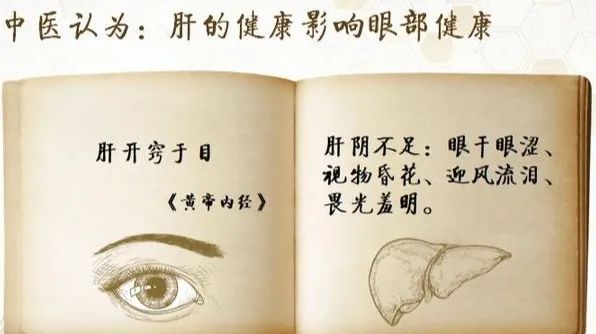 中医认为：肝的健康影响眼部健康
肝开窍于目
《黄帝内经》
肝阴不足：眼干眼涩、
视物昏花、迎风流泪、
畏光羞明。